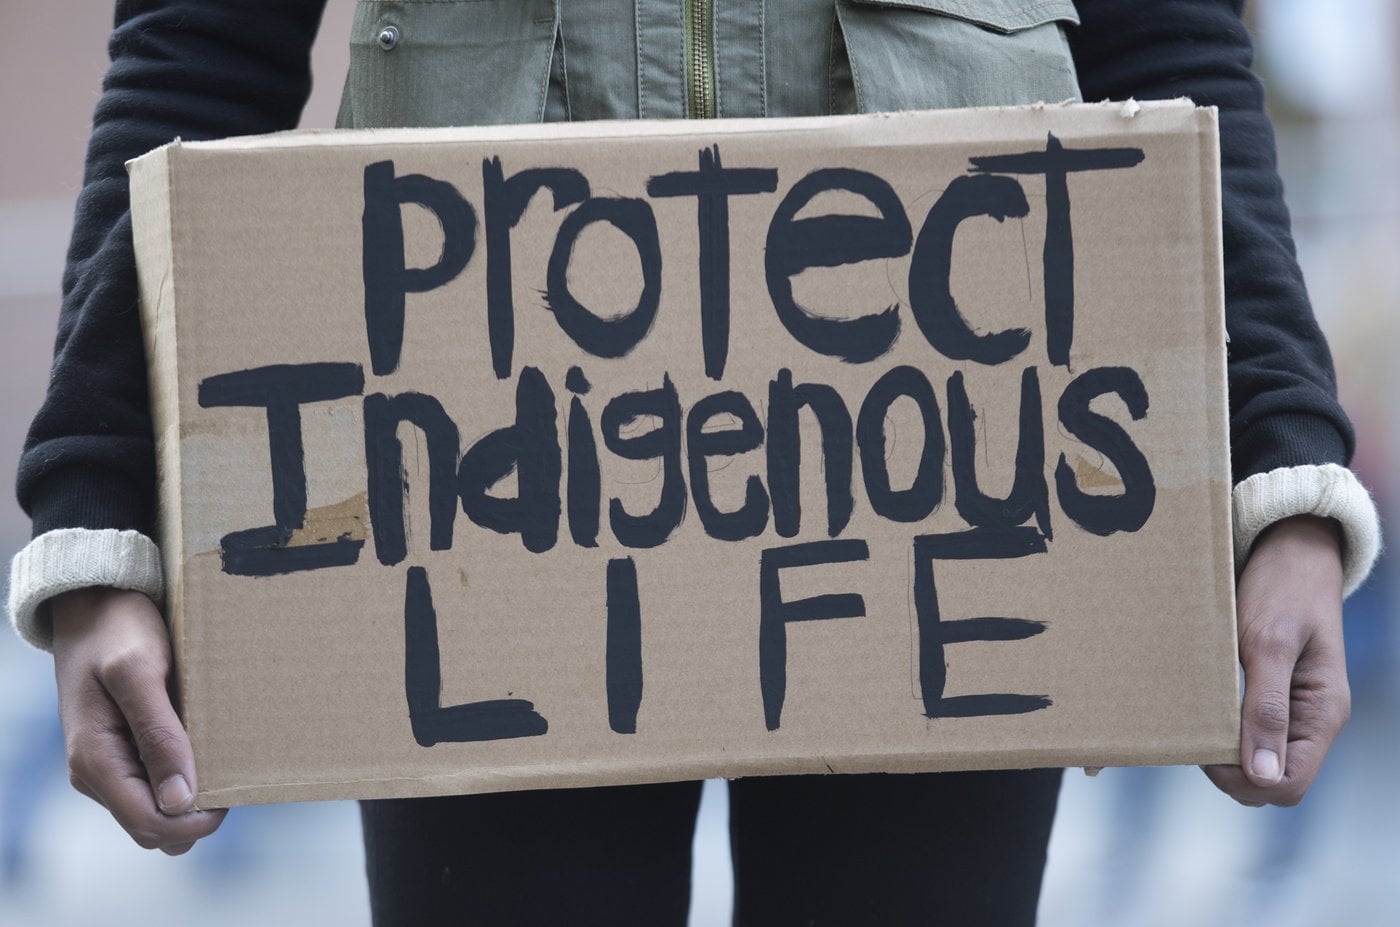 protect
Indigenous
LIFE